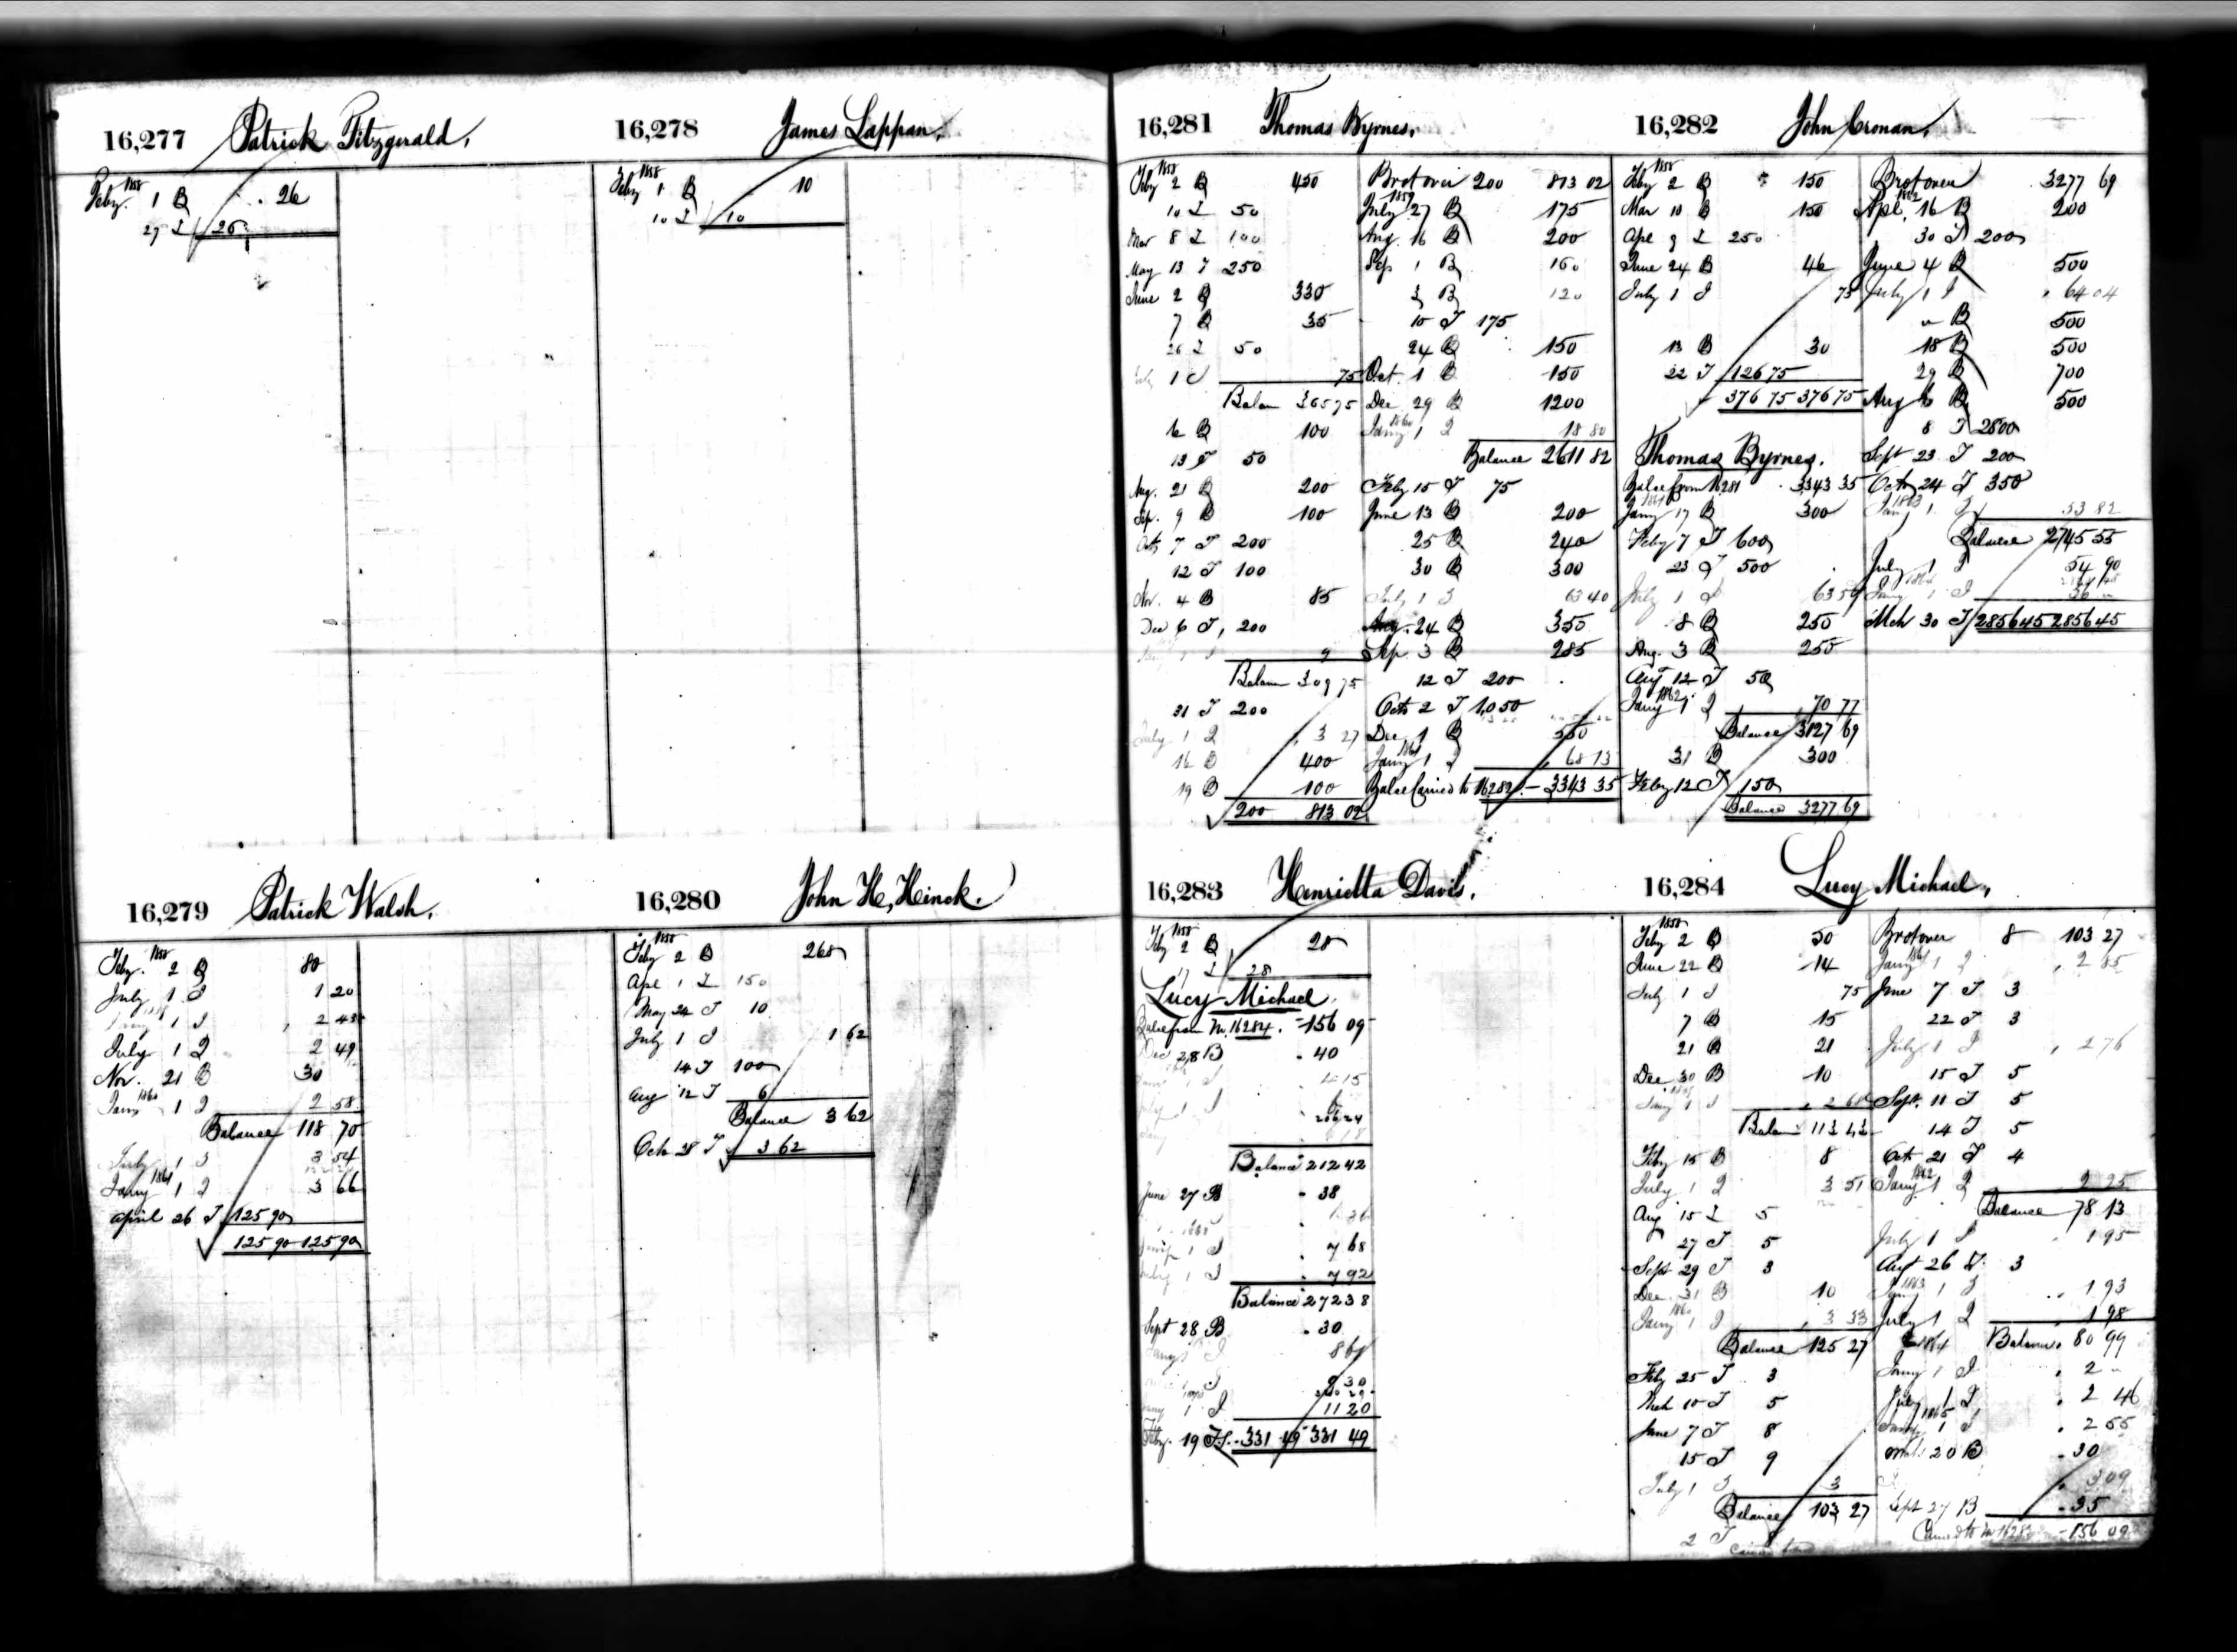 16,277 Patrick Fitzgerald.
1858
Feby. 1 B 26
27 I 26
16,278 James Lappan.
1858
Feby 1 B 10
10 I 10
16,279 Patrick Walsh.
1858
Feby. 2 B 80
July 1 I 1 20
1 I 2 43
July 1 I 2 49
Nov. 21 B 30
1860
Jany 1 I 2 58
Balance 118 70
July 1 I 3 54
1861
Jany 1 I 3 66
April 26 I 125 90
125 90 125 90
16,280 John H. Heinck.
1858
Feby 2 B 268
Apl 1 I 150
May 24 I 10
July 1 I 1 62
14 I 100
Aug 12 I 6
Balance 3 62
Octo 28 I 3 62
16,281 Thomas Byrnes.
1858
Feby 2 B 450
10 I 50
Mar 8 I 100
May 13 I 250
June 2 B 330
7 B 35
26 I 50
July 1 I 75
Balan 365 75
6 B 100
13 I 50
Aug. 21 B 200
Sep. 9 B 100
Octo 7 I 200
12 I 100
Nov. 4 B 85
Dec 6 I, 200
9
Balan 309 75
31 I 200
July 1 I 3 27
16 B 400
19 B 100
200 813 02
Brot over 200 813 02
1859
July 27 B 175
Aug. 16 B 200
Sep 1 B 160
3 B 120
15 I 175
24 B 150
Oct. 1 B 150
Dec 29 B 1200
1860
Jany 1 I 18 80
Balance 2611 82
Feby 15 I 75
June 13 B 200
25 B 240
30 B 300
July 1 I 63 40
Aug. 24 B 350
Sep. 3 B 285
12 I 200
Octo 2 I 1,050
Dec 1 B 550
1861
Jany 1 I 68 13
Balce Carried to 16282 - 3343 35
16,282 John Cronan.
1858
Feby 2 B 150
Mar 10 B 150
Apl 9 I 250
June 24 B 46
July 1 I 75
13 B 30
22 I 126 75
376 75 376 75
Thomas Byrnes.
Balce from 16281 3343 35
1861
Jany 17 B 300
Feby 7 I 600
23 I 500
July 1 I 63 59
8 B 250
Aug. 3 B 250
Augt 12 I 50
1862
Jany 1 I 70 77
Balance 3127 69
31 B 300
Feby 12 I 150
Balance 3277 69
Brot over 3277 69
1862
Apl. 16 B 200
30 I 200
June 4 B 500
July 1 I 64 04
" B 500
18 B 500
29 B 700
Aug 6 B 500
8 I 2500
Sept 23 I 200
Octo 24 I 350
1863
Jany 1 I 53 82
Balance 2745 55
July 1 I 54 90
1864
Jany 1 I 56 "
Mch 30 I 2856 45 2856 45
16,283 Henrietta Davis.
1858
Feby 2 B 28
17 I 28
Lucy Michael.
Balce from No. 16284. 156 09
Dec 28 B 40
1 I 4 15
206 24
Balance 212 42
June 27 B 38
1868
Jany 1 I 7 68
July 1 I 7 92
Balance 272 38
Sept 28 B 30
Jany 1 I 8 61
I 9 30
1870
Jany 1 I 11 20
Feby. 19 I 331 49 331 49
16,284 Lucy Michael.
1858
Feby 2 B 50
June 22 B 14
July 1 I 75
7 B 15
21 B 21
Dec 30 B 10
1859
Jany 1 I 2 68
Balan 113 43
Feby 15 B 8
July 1 I 3 51
Aug 15 I 5
27 I 5
Sept 29 I 3
Dec. 31 B 10
1860
Jany 1 I 3 33
Balance 125 27
Feby 25 I 3
Mch 10 I 5
June 7 I 8
15 I 9
July 1 I 3
Balance 103 27
2 I
Brot over 8 103 27
1861
Jany 1 I 2 85
June 7 I 3
22 I 3
July 1 I 2 76
15 I 5
Sept. 11 I 5
14 I 5
Oct 21 I 4
1862
Jany 1 I 2 25
Balance 78 13
July 1 I 1 95
Augt 26 I 3
1863
Jany 1 I 1 93
July 1 I 1 98
1864 Balance 80 99
Jany 1 I 2 "
July 1 I 2 46
1865
Jany 1 I 2 55
20 B 30
3 09
Sept 27 B 35
Carried to No 16283 - 156 09